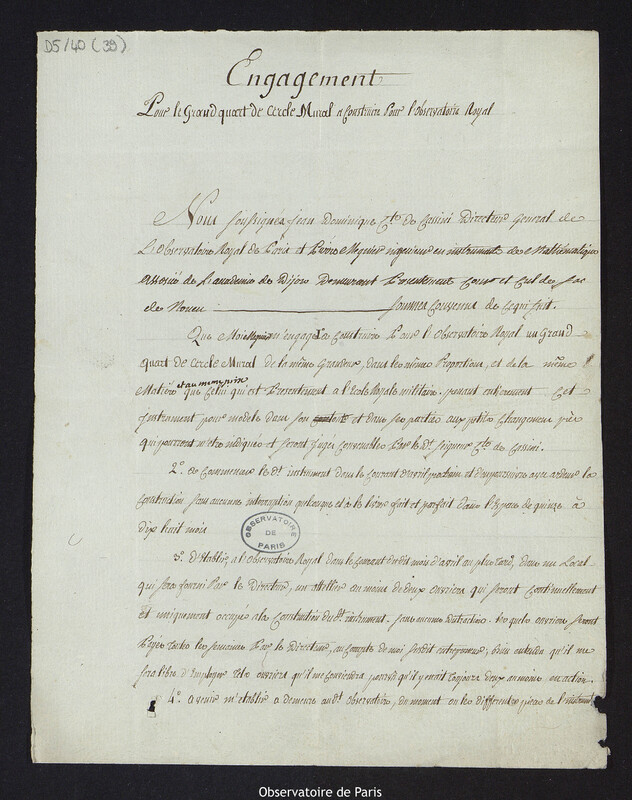 D5/40 (39)
Engagement
Pour le Grand quart de Cercle Mural a Construire Pour l'Observatoire Royal
Nous Soussignés Jean Dominique Cte. de Cassini Directeur General de
L'Observatoire Royal de Paris et Pierre Megnier ingenieur en instruments de Mathématique
Associé de L'academie de Dijon Demeurant Presentement Cour et Cul de Sac
de Rouen Sommes Convenus de Ce qui Suit.
Que Moi Megnier m'engage a Construire Pour l'Observatoire Royal un Grand
quart de Cercle Mural de la même Grandeur, dans les mêmes Proportions, et de la même
Matiere et au meme prix que Celui qui est Presentement a l'Ecole Royale militaire. prenant entierement Cet
Instrument pour modele dans son et dans ses parties aux petits Changemens près
qui pourront m'etre indiqués et seront jugés Convenables Par le dt. Seigneur Cte. de Cassini.
2°. de Commencer le dt. instrument dans le Courant d'avril prochain et d'en poursuivre avec ardeur la
Construction sans aucune interruption quelconque et à le livrer fait et parfait dans l'Espace de quinze à
dix huit mois
OBSERVATOIRE
DE
PARIS
3°. d'Etablir, a l'Observatoire Royal dans le Courant dudit mois d'avril au plus tard, dans un Local
qui sera fourni Par le Directeur, un attelier au moins de deux ouvriers qui seront Continuellement
et uniquement occupés a la Construction du dt. instrument. sans aucune distraction. les quels ouvriers seront
Payés toutes les semaines Par le Directeur, au Compte de moi susdit entrepreneur; bien entendu qu'il me
sera libre d'Employer tels ouvriers qu'il me Conviendra pourvû qu'il y en ait toujours deux au moins en action.
4°. a venir m'etablir a demeure au dt. Observatoire, du moment ou les differentes pieces de l'instrument
Observatoire de Paris